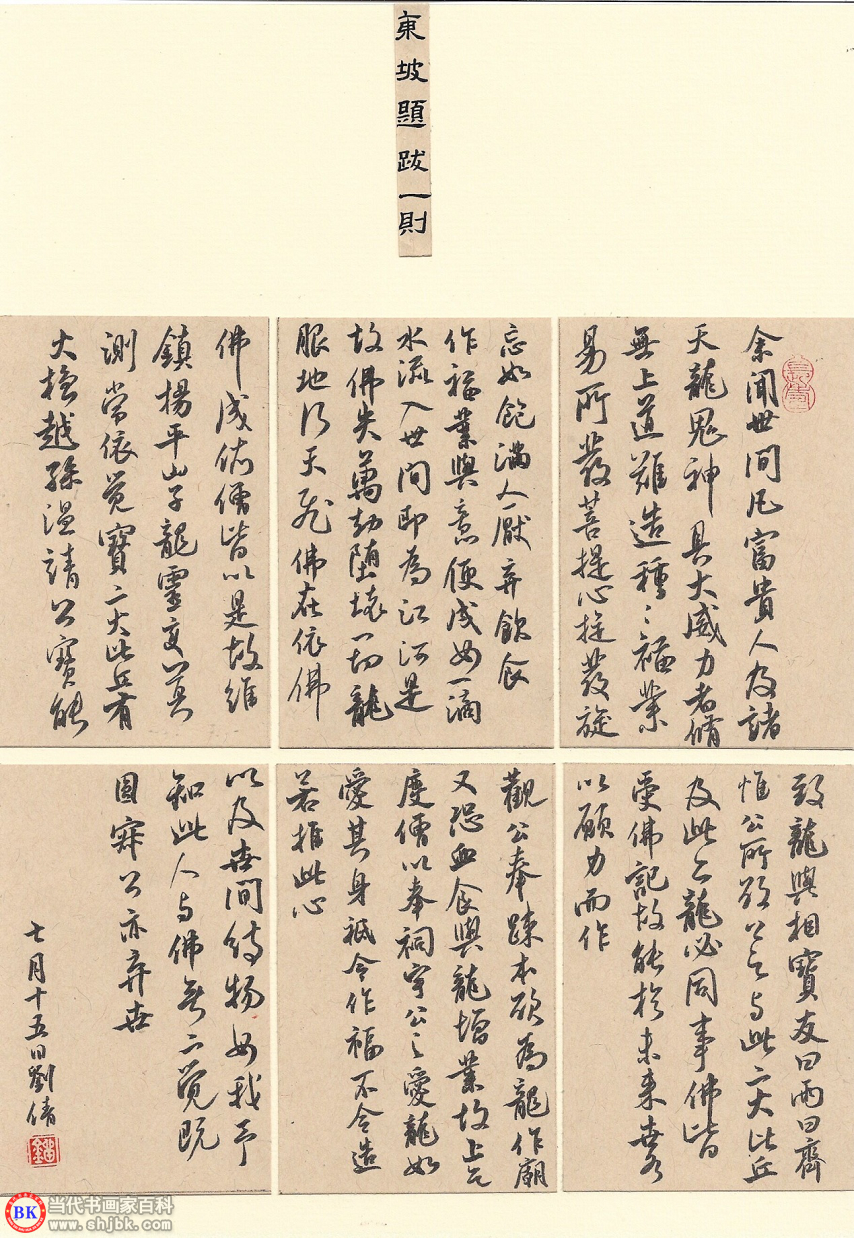 東坡題跋一則
余聞世間凡富貴人及諸
天龍鬼神具大威力者脩
無上道難造種〻福業
易所發菩提心旋發旋
忘如飽滿人厭弃飲食
作福業與意便成如一滴
水流入世間即為江河是
故佛失萬劫墮壞一切龍
眼地行天飛佛在依佛
佛成依僧皆以是故維
鎮楊平山子龍靈變莫
測常依覺寶二大比丘有
大檀越孫溫請公寶能
致龍與相寶友曰雨曰齊
惟公所欲公之与此二大比丘
及此二龍必同事佛皆
受佛記故能於未來世各
以願力而作
觀公奉疎本欲為龍作廟
又恐血食與龍增業故上乞
度僧以奉祠宇公之愛龍如
愛其身祇令作福不令造
若推此心
以及世間待物如我予
知此人与佛無二覺既
圓寂公亦弃世
七月十五日劉倩
BK 当代书画家百科
www.shjbk.com